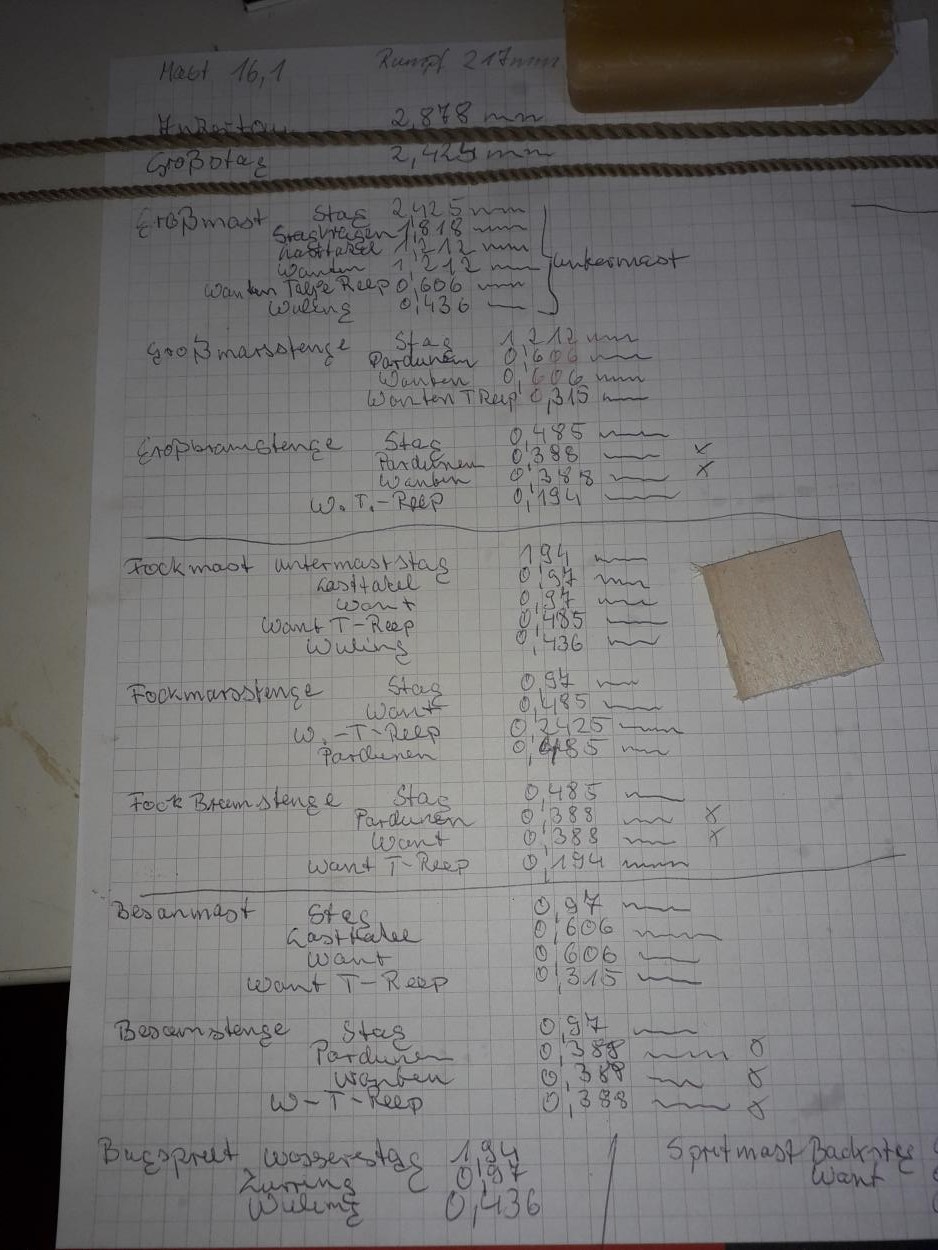 Mast 16,1 Rumpf 217mm
Ankertau 2,878 mm
Großstag 2,425 mm
Großmast Stag 2,425 mm
Stagkragen 1,818 mm
Lasttakel 1,212 mm
Wanten 1,212 mm untermast
Wanten Talje Reep 0,606 mm
Wuling 0,436 mm
Großmarsstenge Stag 1,212 mm
Pardunen 0,606 mm
Wanten 0,606 mm
Wanten T Reep 0,315 mm
Großbramstenge Stag 0,485 mm
Pardunen 0,388 mm x
Wanten 0,388 mm x
W. T.-Reep 0,194 mm
Fockmast untermaststag 1,94 mm
Lasttakel 0,97 mm
Want 0,97 mm
Want T-Reep 0,485 mm
Wuling 0,436 mm
Fockmarsstenge Stag 0,97 mm
Want 0,485 mm
W.-T-Reep 0,2425 mm
Pardunen 0,485 mm
Fock Bramstenge Stag 0,485 mm
Pardunen 0,388 mm x
Want 0,388 mm x
Want T-Reep 0,194 mm
Besanmast Stag 0,97 mm
Lasttakel 0,606 mm
Want 0,606 mm
Want T-Reep 0,315 mm
Besamstenge Stag 0,97 mm
Pardunen 0,388 mm x
Wanten 0,388 mm x
W-T-Reep 0,388 mm x
Bugspriet Wasserstag 1,94 / Spritmast Backsteg
Zurring 0,97 Want
Wuling 0,436